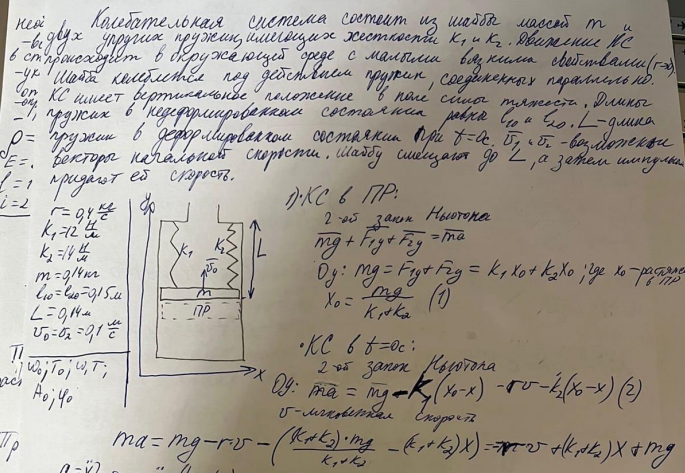 Колебательная система состоит из шайбы массой m и
двух упругих пружин, имеющих жесткости k₁ и k₂. Движение КС
происходит в окружающей среде с малыми вязкими свойствами (r=
Шайба колеблется под действием пружин, соединенных параллельно.
КС имеет вертикальное положение в поле силы тяжести. Длины
пружин в недеформированном состоянии равна l₁₀ и l₂₀. L-длина
пружин в деформированном состоянии при t=0с. v̄₁ и v̄₂ - возможные
векторы начальной скорости. Шайбу смещают до L, а затем импульсом
придают ей скорость.
r=0,4 кг/с
k₁=12 Н/м
k₂=14 Н/м
m=0,14кг
l₁₀=l₂₀=0,15м
L=0,14м
v₀=v₂=0,1 м/с
ω₀; T₀; ω; T;
A₀; φ₀
y
k₁
k₂
v̄₀
L
m
ПР
x
1) КС в ПР:
2-ой закон Ньютона
m̄g + F̄₁y + F̄₂y = m̄a
Oy: mg = F₁y + F₂y = k₁x₀ + k₂x₀; где x₀-растяж
в ПР
x₀ = mg/(k₁+k₂) (1)
• КС в t=0с:
2-ой закон Ньютона
Oy: ma = mg - k₁(x₀-x) - rv - k₂(x₀-x) (2)
v-мгновенная скорость
ma = mg - rv - ((k₁+k₂)·mg/(k₁+k₂) - (k₁+k₂)x) = -rv + (k₁+k₂)x + mg